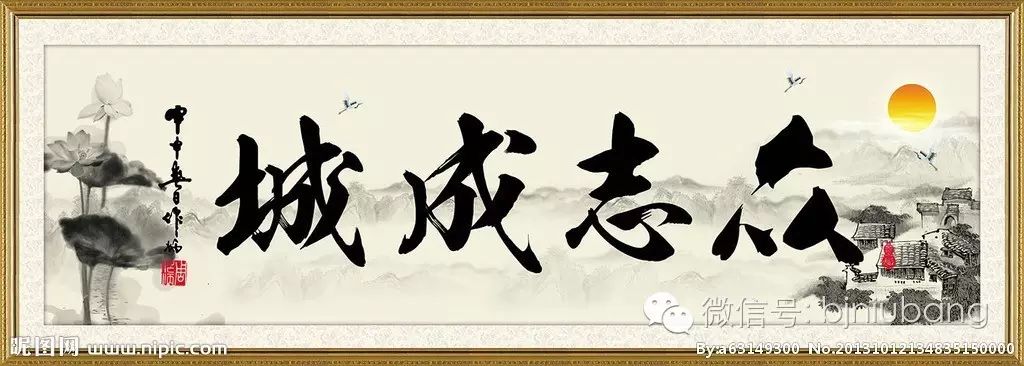 众志成城
甲申春日
微信号: bjniubang
昵图网 www.nipic.com
By:a63149300 No.20131012134835150000